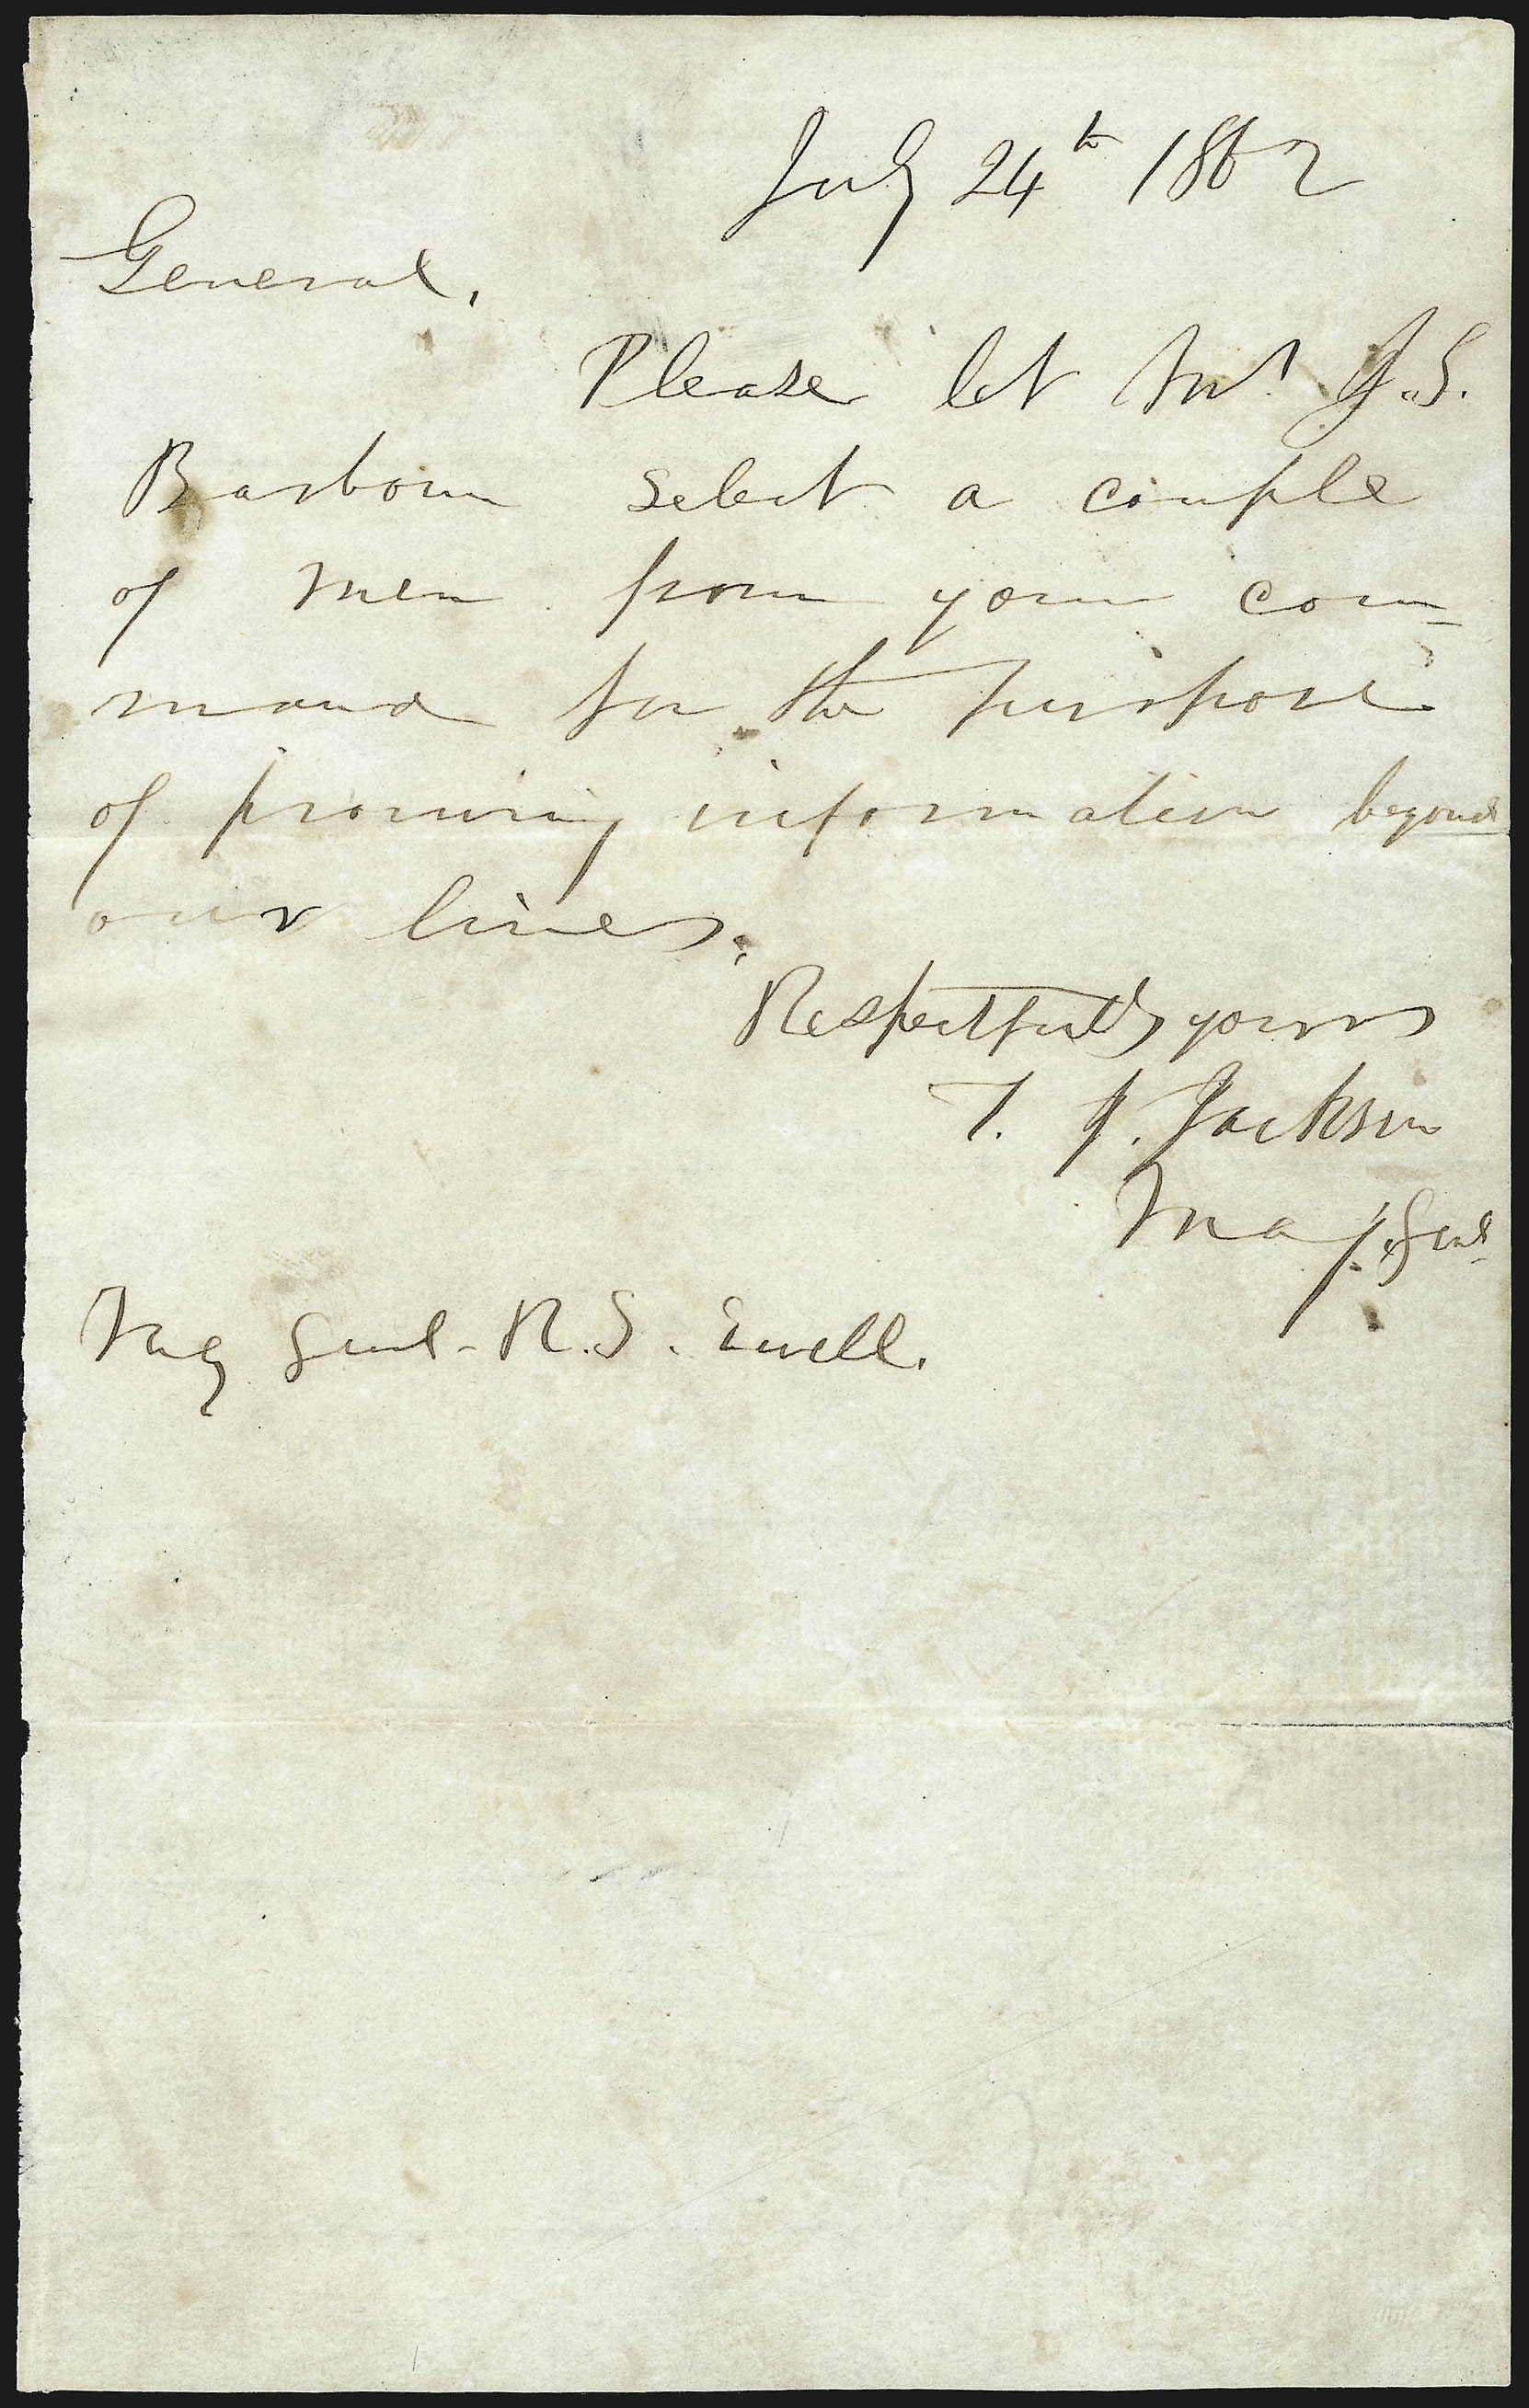 July 24th 1862
General,
Please let Mr. J.S.
Barbour select a couple
of men from your com-
mand for the purpose
of procuring information beyond
our lines.
Respectfully yours
T. J. Jackson
Maj. Genl.
Maj Genl. R.S. Ewell.